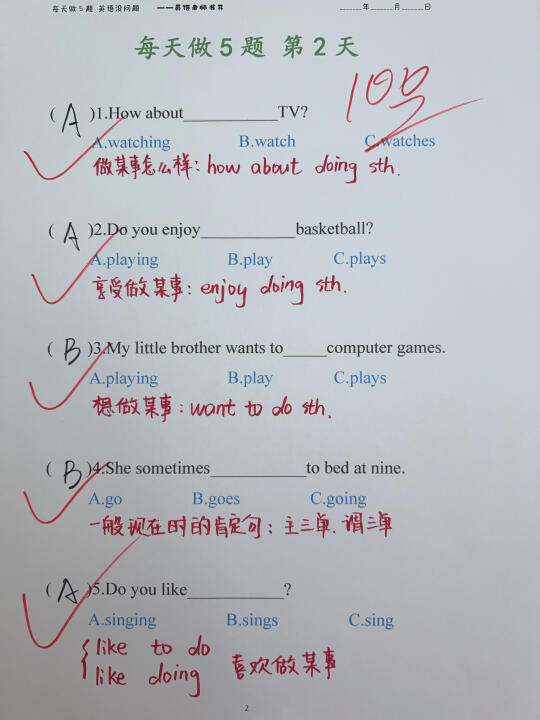 每天做5题 英语没问题
年 月 日
每天做5题 第2天
100
( A )1.How about____________TV?
A.watching B.watch C.watches
做某事怎么样: how about doing sth.
( A )2.Do you enjoy____________basketball?
A.playing B.play C.plays
享受做某事: enjoy doing sth.
( B )3.My little brother wants to_____computer games.
A.playing B.play C.plays
想做某事: want to do sth.
( B )4.She sometimes____________to bed at nine.
A.go B.goes C.going
一般现在时的肯定句: 主三单, 谓三单
( A )5.Do you like____________?
A.singing B.sings C.sing
like to do
like doing 喜欢做某事
2